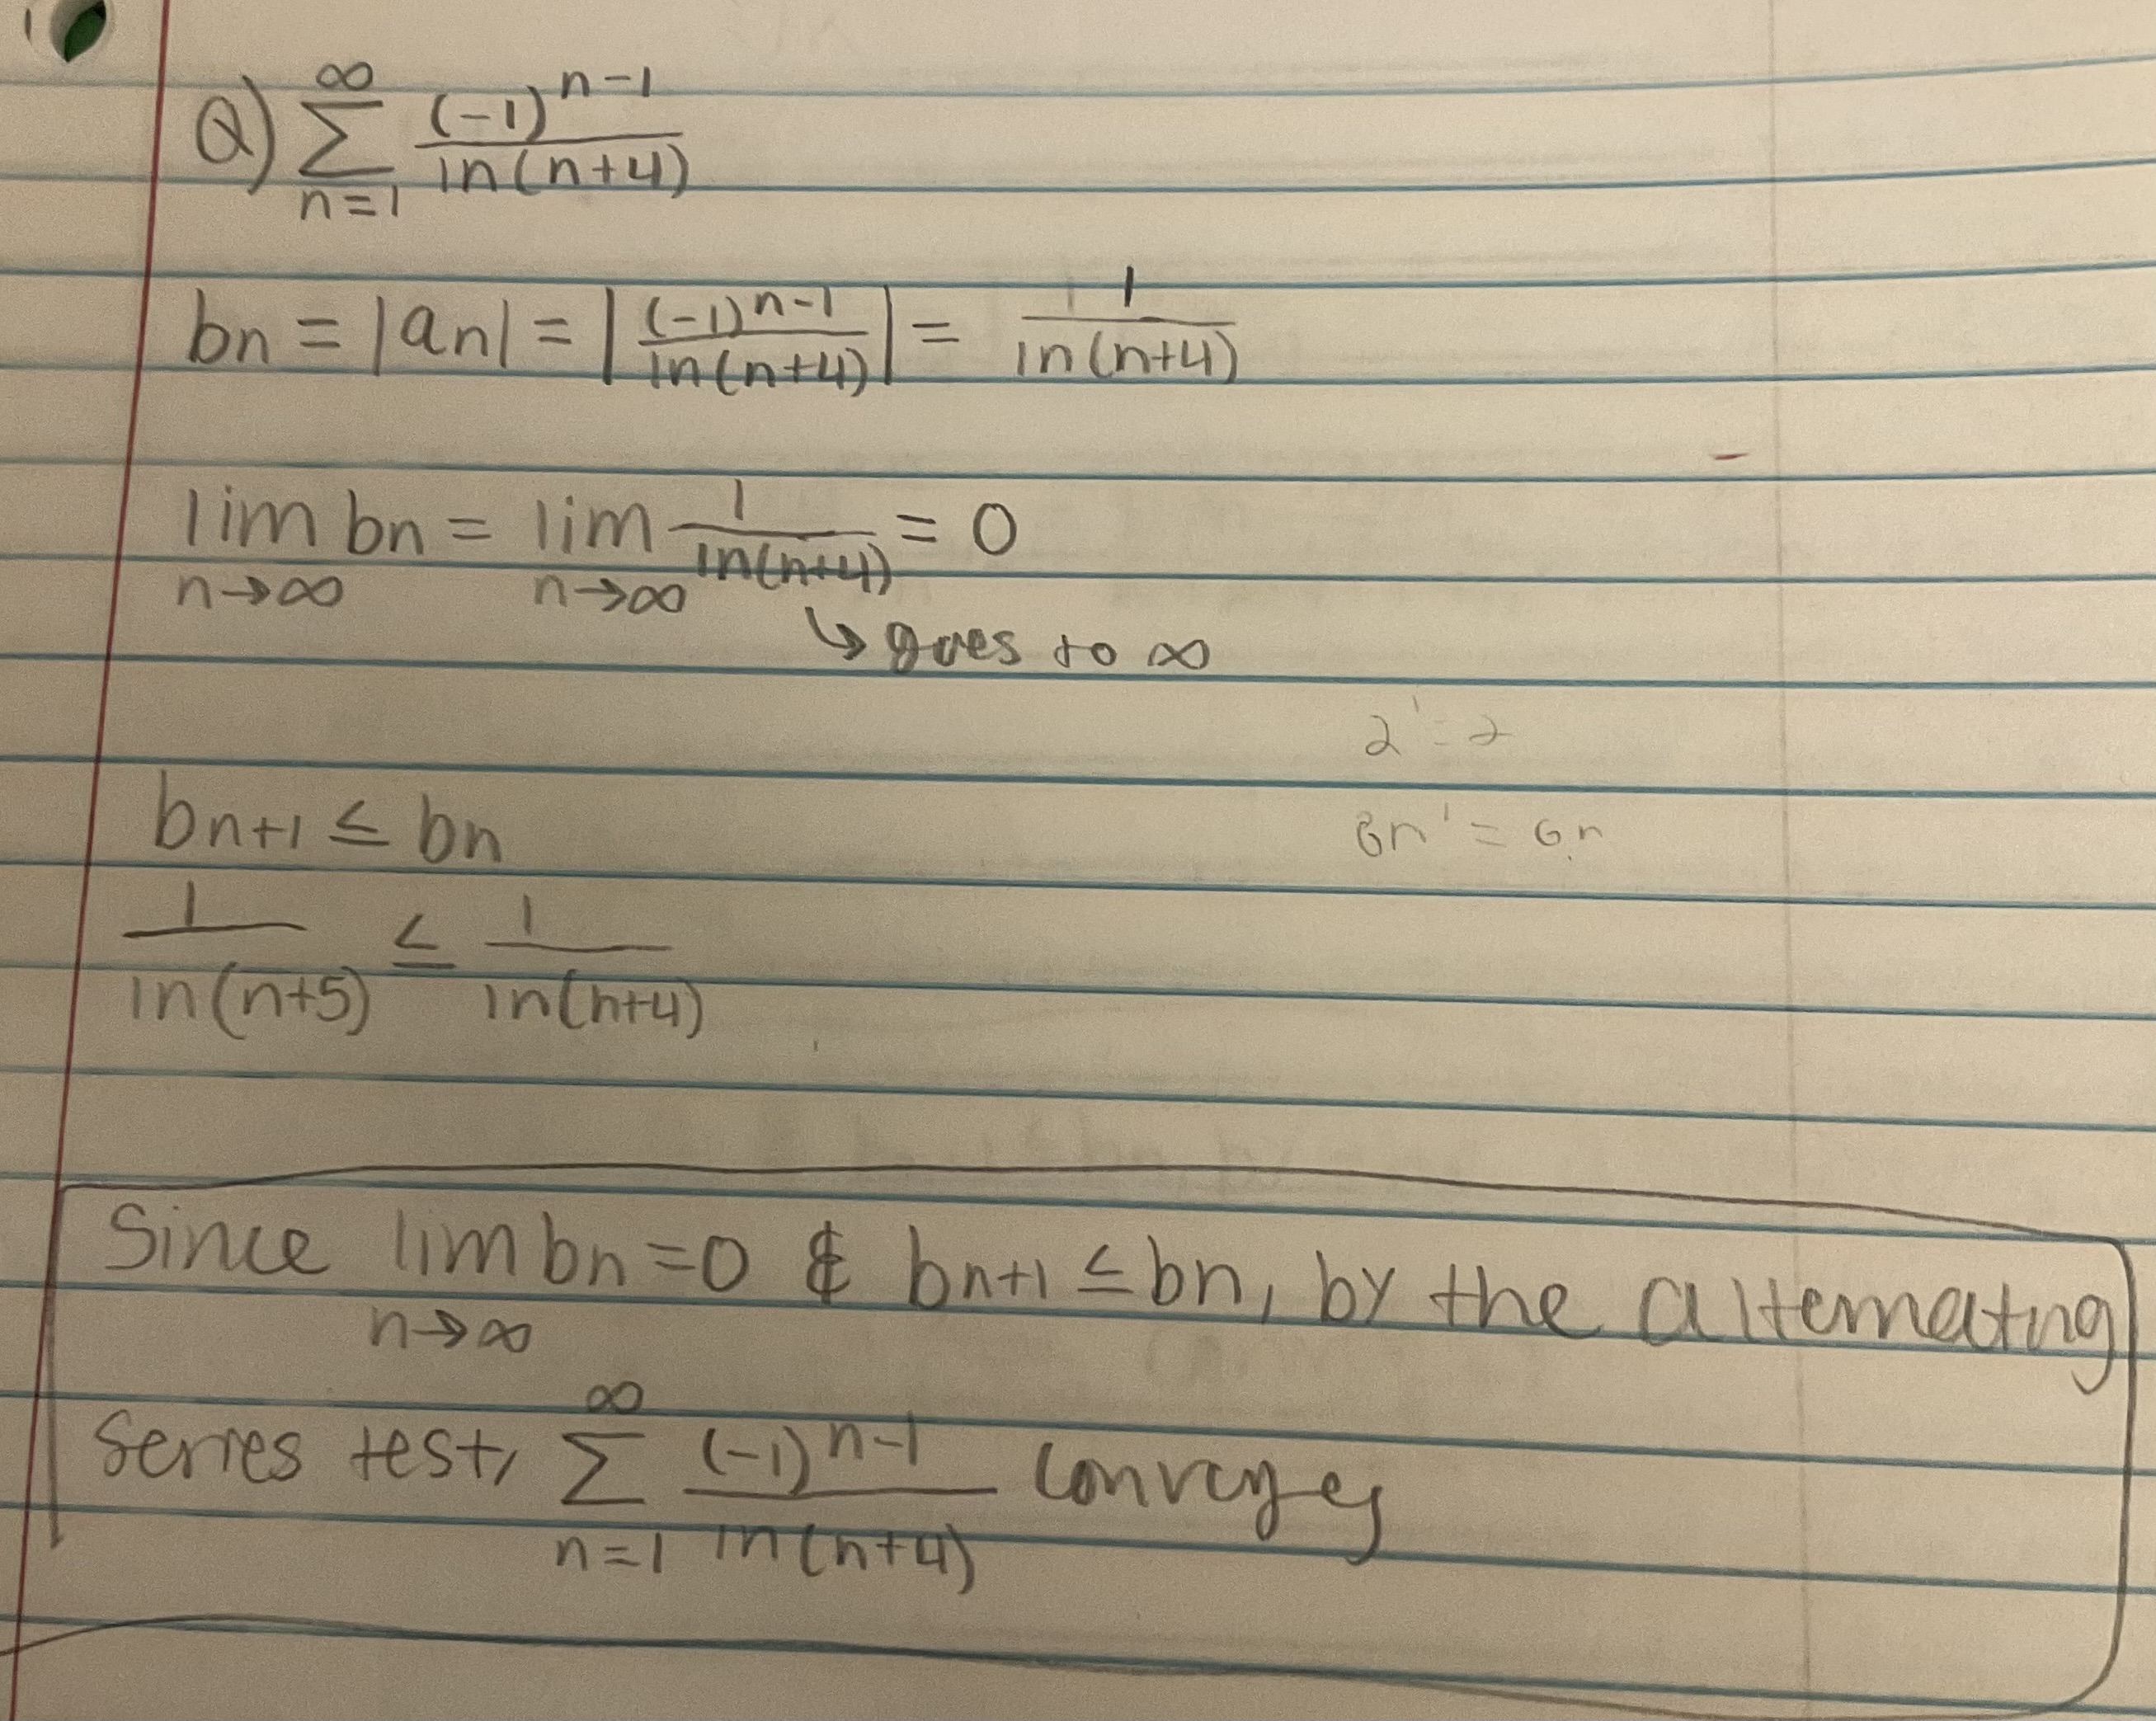 Q) ∞∑n=1 (-1)^(n-1) / ln(n+4)
bn = |an| = |(-1)^(n-1) / ln(n+4)| = 1 / ln(n+4)
lim n→∞ bn = lim n→∞ 1 / ln(n+4) = 0
↳ goes to ∞
2' = 2
bn+1 ≤ bn
1 / ln(n+5) ≤ 1 / ln(n+4)
Since lim n→∞ bn = 0 & bn+1 ≤ bn, by the alternating
series test, ∞∑n=1 (-1)^(n-1) / ln(n+4) converges